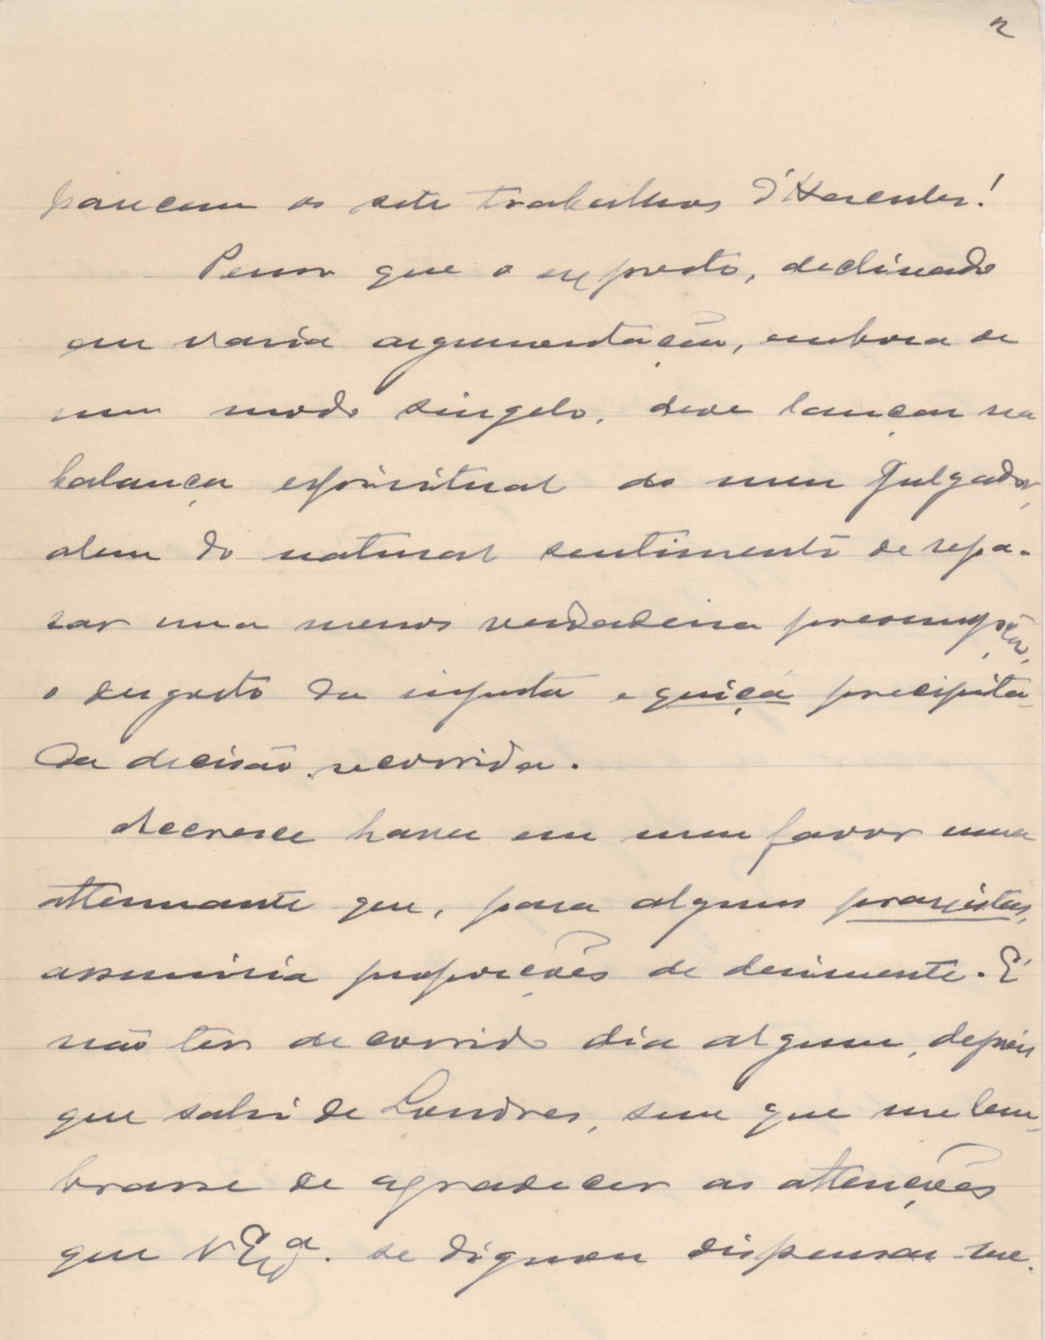 2
pareceu os sete trabalhos d'Hercules!
Penso que o exposto, declinado
em varia argumentação, embora de
um modo singelo, deve lançar na
balança espiritual do meu Julgador,
alem do natural sentimento de repa-
rar uma menos verdadeira presumpção,
o desgosto da injusta e quiçá precipita-
da decisão recorrida.
Accresce haver em meu favor uma
attenuante que, para alguns praxistas,
assumiria proporções de dirimente. É
não ter decorrido dia algum, depois
que sahi de Londres, sem que me lem-
brasse de agradecer as attenções
que V. Exª. se dignou dispensar-me.